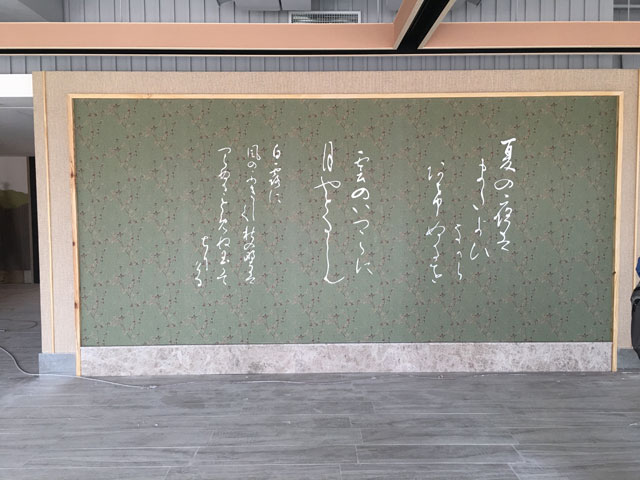 夏の夜は
まだよひ
なから
あけぬるを
雲のいつくに
月やとるらん
白露に
風のふきしく秋の野は
つらぬきとめぬ玉そ
ちりける